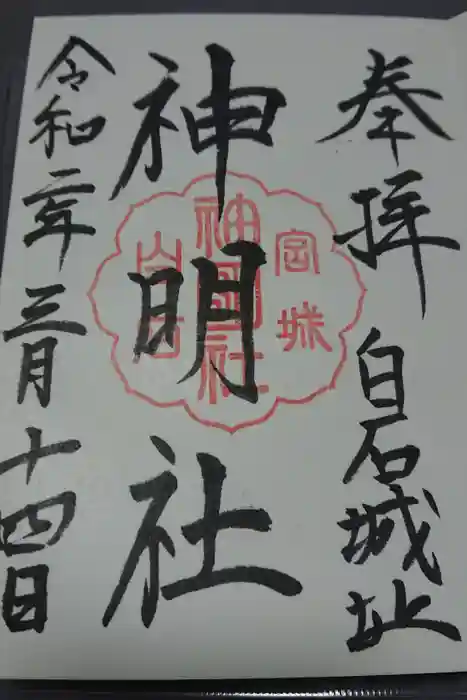 奉拝 白石城址
神明社
令和二年三月十四日
宮城
神明社
白石